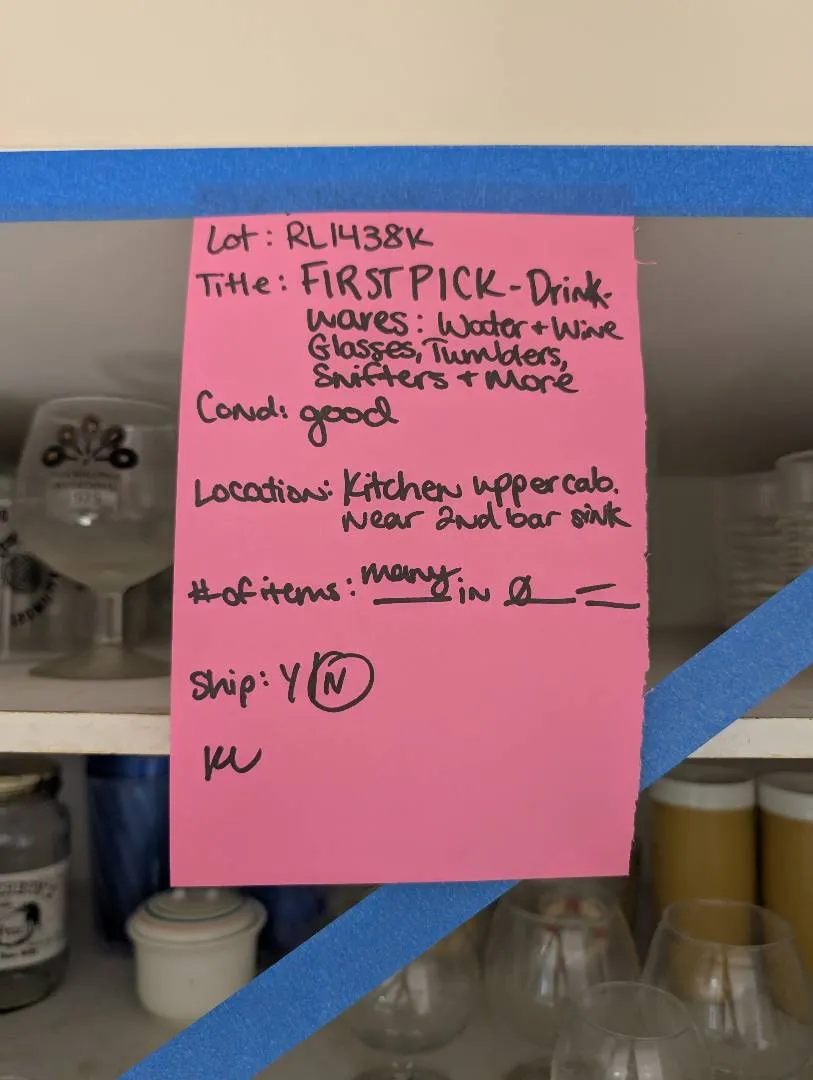 Lot: RL1438K
Title: FIRST PICK - Drink-
wares: Water + Wine
Glasses, Tumblers,
Snifters + More
Cond: good
Location: Kitchen upper cab.
near 2nd bar sink
# of items: many in Ø
Ship: Y/N
KW